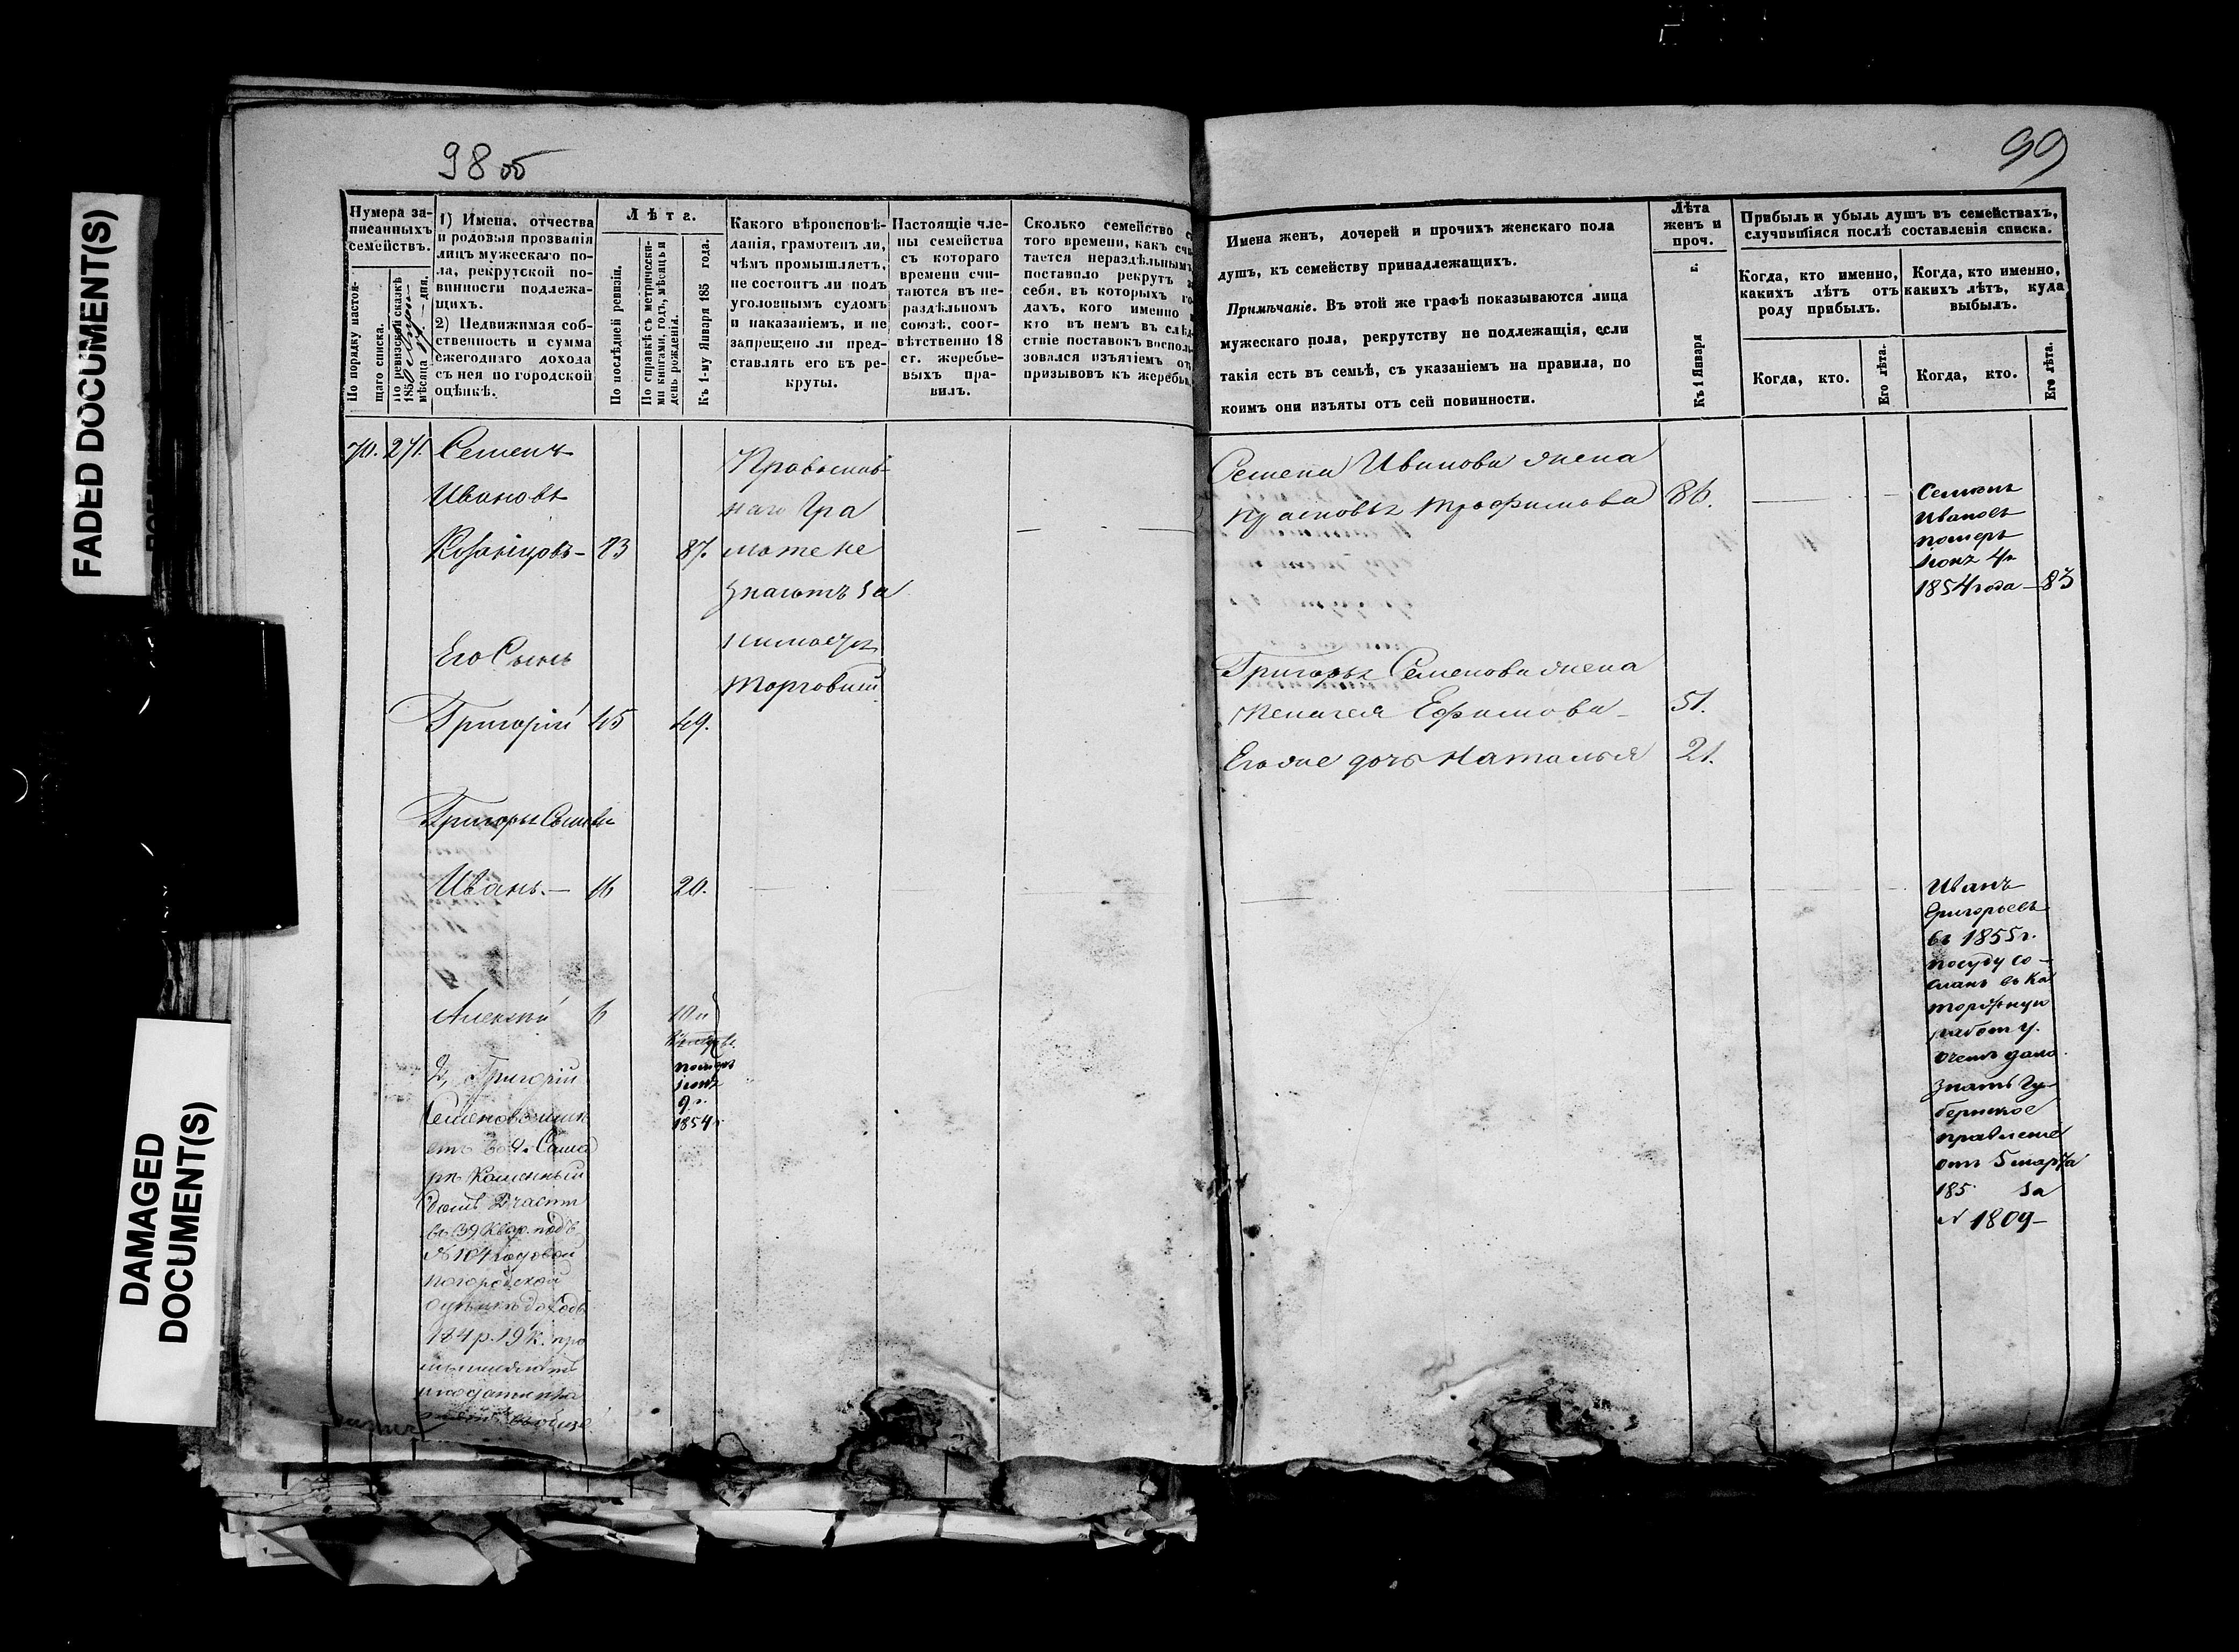 FADED DOCUMENT(S)
DAMAGED
DOCUMENT(S)
98 об
Нумера за-
писанныхъ
семействъ.
По порядку настоя-
щаго списка.
По ревизской сказкѣ
185
мѣсяца дня.
1) Имена, отчества
и родовыя прозванія
лицъ мужескаго по-
ла, рекрутской по-
винности подлежа-
щихъ.
2) Недвижимая соб-
ственность и сумма
ежегоднаго дохода
съ нея по городской
оцѣнкѣ.
Лѣта.
По послѣдней ревизіи.
По справкѣ съ метрически-
ми книгами, годъ, мѣсяцъ и
день рожденія.
Къ 1-му Января 185 года.
Какого вѣроисповѣ-
данія, грамотенъ ли,
чѣмъ промышляетъ,
не состоитъ ли подъ
уголовнымъ судомъ
и наказаніемъ, и не
запрещено ли пред-
ставлять его въ ре-
круты.
Настоящіе чле-
ны семейства
съ котораго
времени счи-
таются въ не-
раздѣльномъ
союзѣ, соот-
вѣтственно 18
ст. жеребье-
выхъ пра-
вилъ.
Сколько семейство с
того времени, какъ счи
тается нераздѣльнымъ
поставило рекрутъ з
себя, въ которыхъ го
дахъ, кого именно и
кто въ немъ въ слѣд
ствіе поставокъ восполь
зовался изъятіемъ от
призывовъ къ жеребью
70. 271. Семенъ
Ивановъ
83 87.
Православ
наго Гра
моте не
знаютъ за
нимаются
торговлей
Его Сынъ
Григорій 45 49.
Григорья Сыновья
Иванъ.— 16 20.
Алексѣй 6 10
померъ
1854 г.
2, Григорій
Семеновъ имѣ
етъ въ г. Сама
рѣ Каменный
домъ 2 части
въ 39 квар. подъ
№ 104 годовой
по городской
оцѣнкѣ доходъ
184 р. 19 к. про
99
Имена женъ, дочерей и прочихъ женскаго пола
душъ, къ семейству принадлежащихъ.
Примѣчаніе. Въ этой же графѣ показываются лица
мужескаго пола, рекрутству не подлежащія, если
такія есть въ семьѣ, съ указаніемъ на правила, по
коимъ они изъяты отъ сей повинности.
Лѣта
женъ и
проч.
Къ 1 Января г.
Прибыль и убыль душъ въ семействахъ,
случившіяся послѣ составленія списка.
Когда, кто именно,
какихъ лѣтъ отъ
роду прибылъ.
Когда, кто именно,
какихъ лѣтъ, куда
выбылъ.
Когда, кто.
Его лѣта.
Когда, кто.
Его лѣта.
Семена Иванова жена
Прасковья Трофимова 86.
Семенъ
Ивановъ
померъ
1854 года — 83
Григорья Семенова жена
Пелагея Ефимова — 51.
Его же дочь Наталья 21.
Иванъ
Григорьевъ
въ 1855 г.
по суду со-
сланъ въ ка
торжную
работу.
о чемъ дало
знать Гу-
бернское
правленіе
отъ 5 марта
185 за
№ 1809—